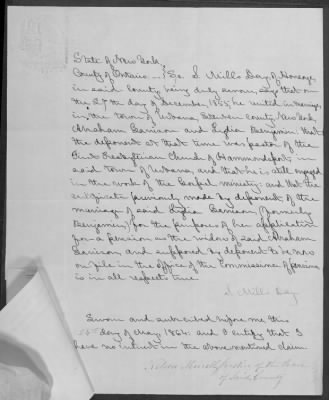 State of New York,
County of Ontario } Ss. S. Mills Day, of Honeoye,
in said county, being duly sworn, says that on
the 27th day of December, 1855, he united in marriage,
in the town of Urbana, Steuben County, New York,
Abraham Garrison and Lydia Benjamin; that
the deponent at that time was pastor of the
First Presbyterian Church of Hammondsport, in
said town of Urbana, and that he is still engaged
in the work of the Gospel ministry; and that the
certificate previously made by deponent of the
marriage of said Lydia Garrison (formerly
Benjamin) for the purpose of her application
for a pension as the widow of said Abraham
Garrison, and supposed by deponent to be now
on file in the office of the Commissioner of Pensions
is in all respects true.
S. Mills Day
Sworn and subscribed before me this
day of May, 1864. and I certify that I
have no interest in the above mentioned claim.
Justice of the Peace
of said County